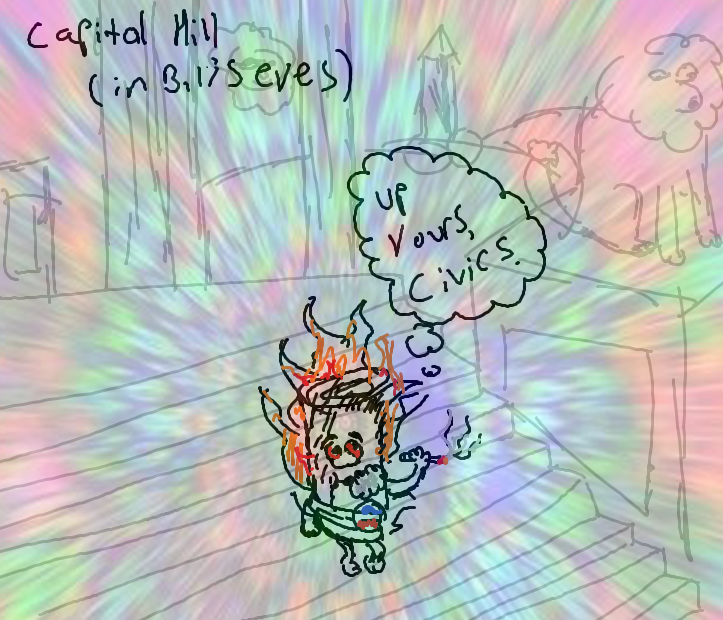 Capital Hill
(in Bill's eyes)
up
Yours,
Civics.